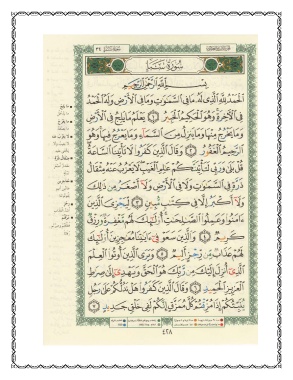 سُورَةُ سَبَإٍ
بِسْمِ اللَّهِ الرَّحْمَٰنِ الرَّحِيمِ
الْحَمْدُ لِلَّهِ الَّذِي لَهُ مَا فِي السَّمَٰوَٰتِ وَمَا فِي الْأَرْضِ وَلَهُ الْحَمْدُ
فِي الْآخِرَةِ وَهُوَ الْحَكِيمُ الْخَبِيرُ ١ يَعْلَمُ مَا يَلِجُ فِي الْأَرْضِ
وَمَا يَخْرُجُ مِنْهَا وَمَا يَنزِلُ مِنَ السَّمَاءِ وَمَا يَعْرُجُ فِيهَا وَهُوَ
الرَّحِيمُ الْغَفُورُ ٢ وَقَالَ الَّذِينَ كَفَرُوا لَا تَأْتِينَا السَّاعَةُ
قُلْ بَلَىٰ وَرَبِّي لَتَأْتِيَنَّكُمْ عَٰلِمِ الْغَيْبِ لَا يَعْزُبُ عَنْهُ مِثْقَالُ
ذَرَّةٍ فِي السَّمَٰوَٰتِ وَلَا فِي الْأَرْضِ وَلَا أَصْغَرُ مِن ذَٰلِكَ
وَلَا أَكْبَرُ إِلَّا فِي كِتَٰبٍ مُّبِينٍ ٣ لِّيَجْزِيَ الَّذِينَ
ءَامَنُوا وَعَمِلُوا الصَّٰلِحَٰتِ أُولَٰئِكَ لَهُم مَّغْفِرَةٌ وَرِزْقٌ
كَرِيمٌ ٤ وَالَّذِينَ سَعَوْ فِي ءَايَٰتِنَا مُعَٰجِزِينَ أُولَٰئِكَ
لَهُمْ عَذَابٌ مِّن رِّجْزٍ أَلِيمٌ ٥ وَيَرَى الَّذِينَ أُوتُوا الْعِلْمَ
الَّذِي أُنزِلَ إِلَيْكَ مِن رَّبِّكَ هُوَ الْحَقَّ وَيَهْدِي إِلَىٰ صِرَٰطِ
الْعَزِيزِ الْحَمِيدِ ٦ وَقَالَ الَّذِينَ كَفَرُوا هَلْ نَدُلُّكُمْ عَلَىٰ رَجُلٍ
يُنَبِّئُكُمْ إِذَا مُزِّقْتُمْ كُلَّ مُمَزَّقٍ إِنَّكُمْ لَفِي خَلْقٍ جَدِيدٍ ٧
٤٢٨